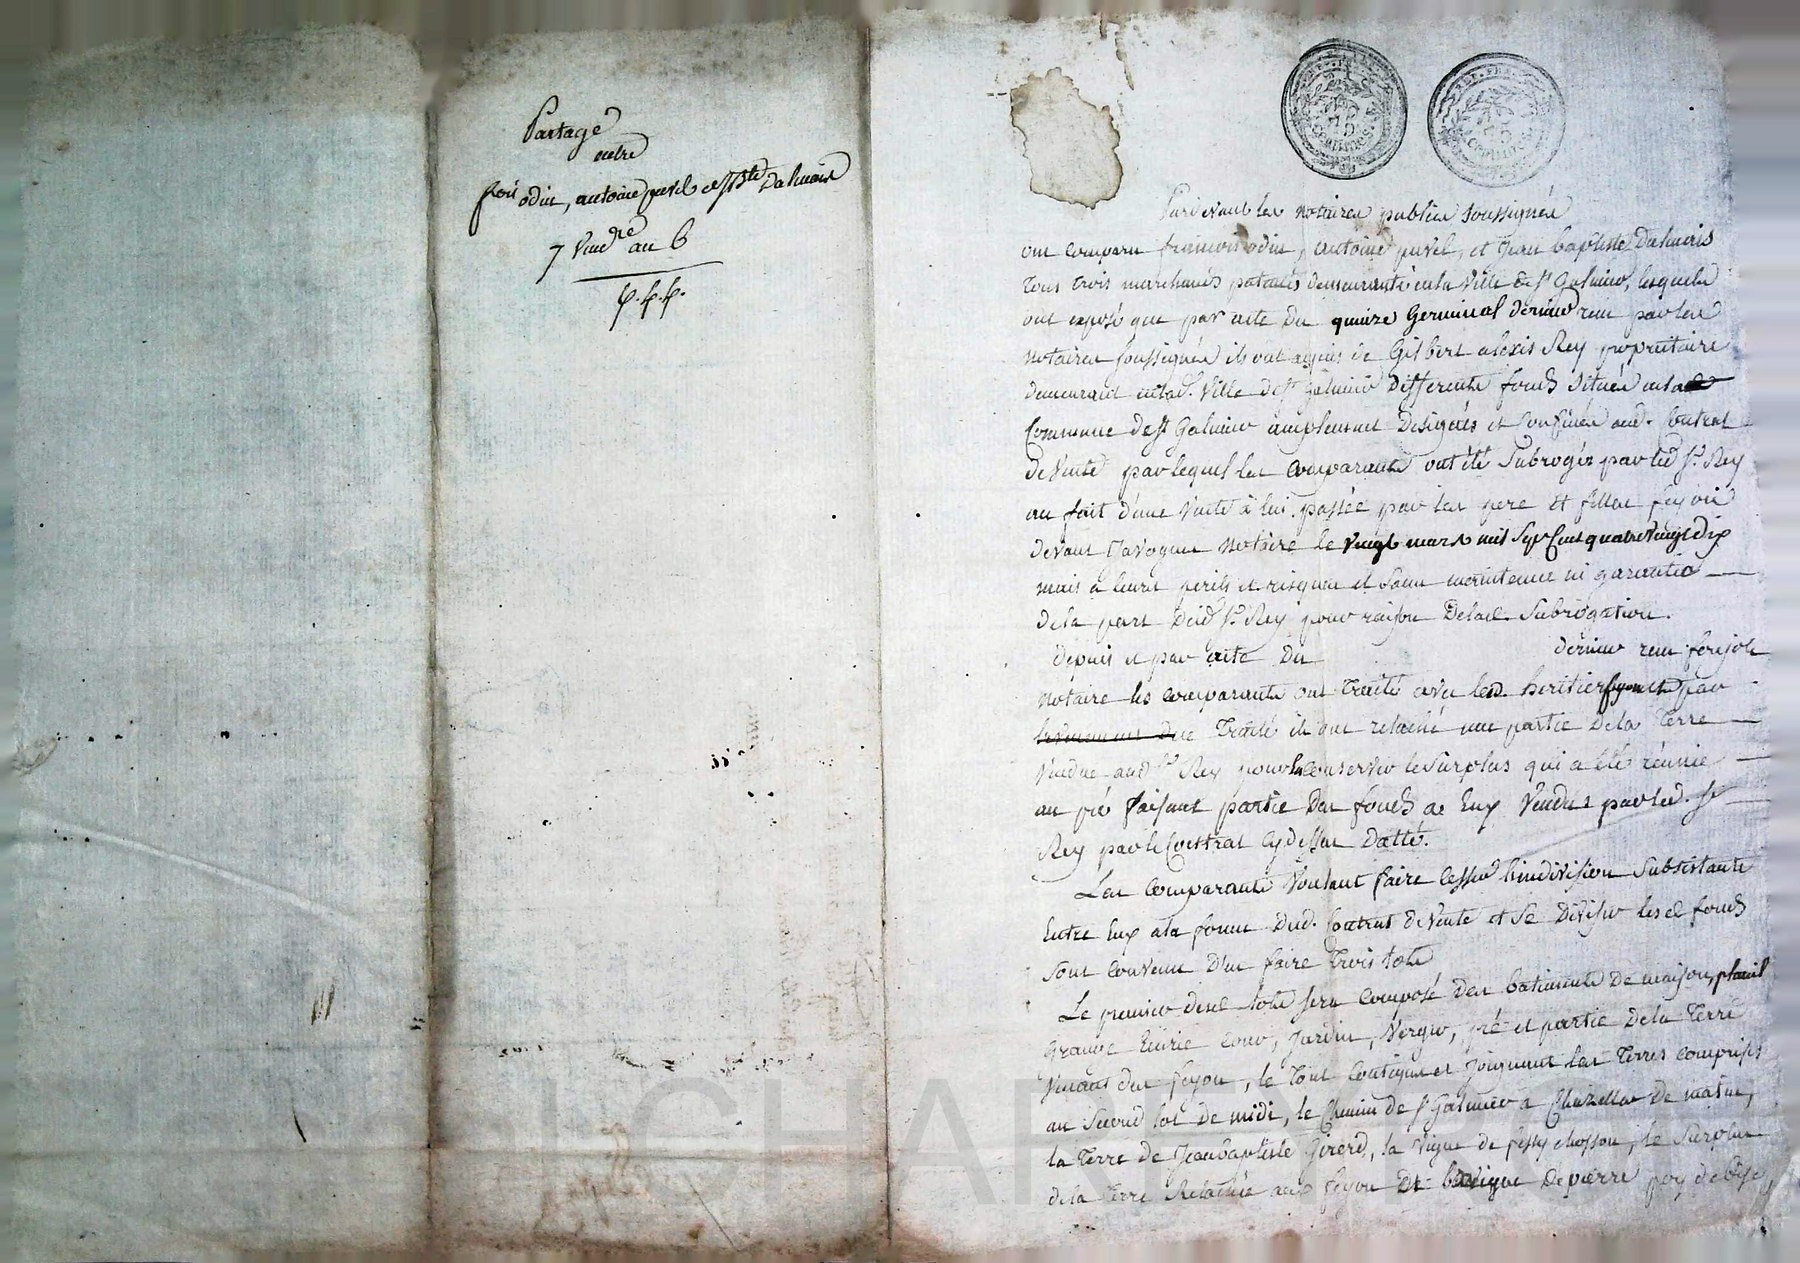 Partage
entre
frois odin, antoine juvel et Jn Bte Dalmais
7 Vendre an 6
Pardevant les Notaires publics soussignés
ont comparu françois odin, antoine juvel, et Jean baptiste Dalmais
tous trois marchands patentés demeurants en la Ville de St Galmier, lesquels
ont exposé que par acte du quinze Germinal dernier reçu par les
notaires soussignés ils ont acquis de Gilbert alexis Rey propriétaire
demeurant en lad. Ville de St Galmier differents fonds situés en la
Commune de St Galmier amplement designés et confinés aud. Contrat
de Vente par lequel les comparants ont été subrogés par led Sr. Rey
au fait d'une Vente à lui passée par les pere et filles feyon
devant Javogue Notaire le vingt mars mil sept cent quatre vingt dix
mais à leurs perils et risques et sans maintenue ni garantie
de la part dud Sr. Rey pour raison de lad. Subrogation.
depuis et par acte du dernier reçu forejole
notaire les comparants ont traité avec les d. heritiers feyon et par
ce Traité ils ont relaché une partie de la Terre
Vendue aud Sr. Rey pour conserver le surplus qui a été réunie
au pré faisant partie des fonds a Eux Vendus par led. Sr
Rey par le Contrat cy dessus datté.
Les comparants Voulant faire cesser l'indivision subsistante
Entre Eux a la forme dud. Contrat de Vente et se diviser lesd fonds
sont convenu d'en faire trois lots
Le premier desd lots sera composé des batiments de maison,
grange Ecurie cour, Jardin, Verger, pré et partie de la Terre
Venant des feyon, le tout contigu et joignant les Terres comprises
au second lot de midi, le Chemin de St Galmier a Chazelles de matin,
la Terre de Jean baptiste Girerd, la vigne de, le surplus
de la Terre Relachée aux feyon et la vigne de pierre de bise,